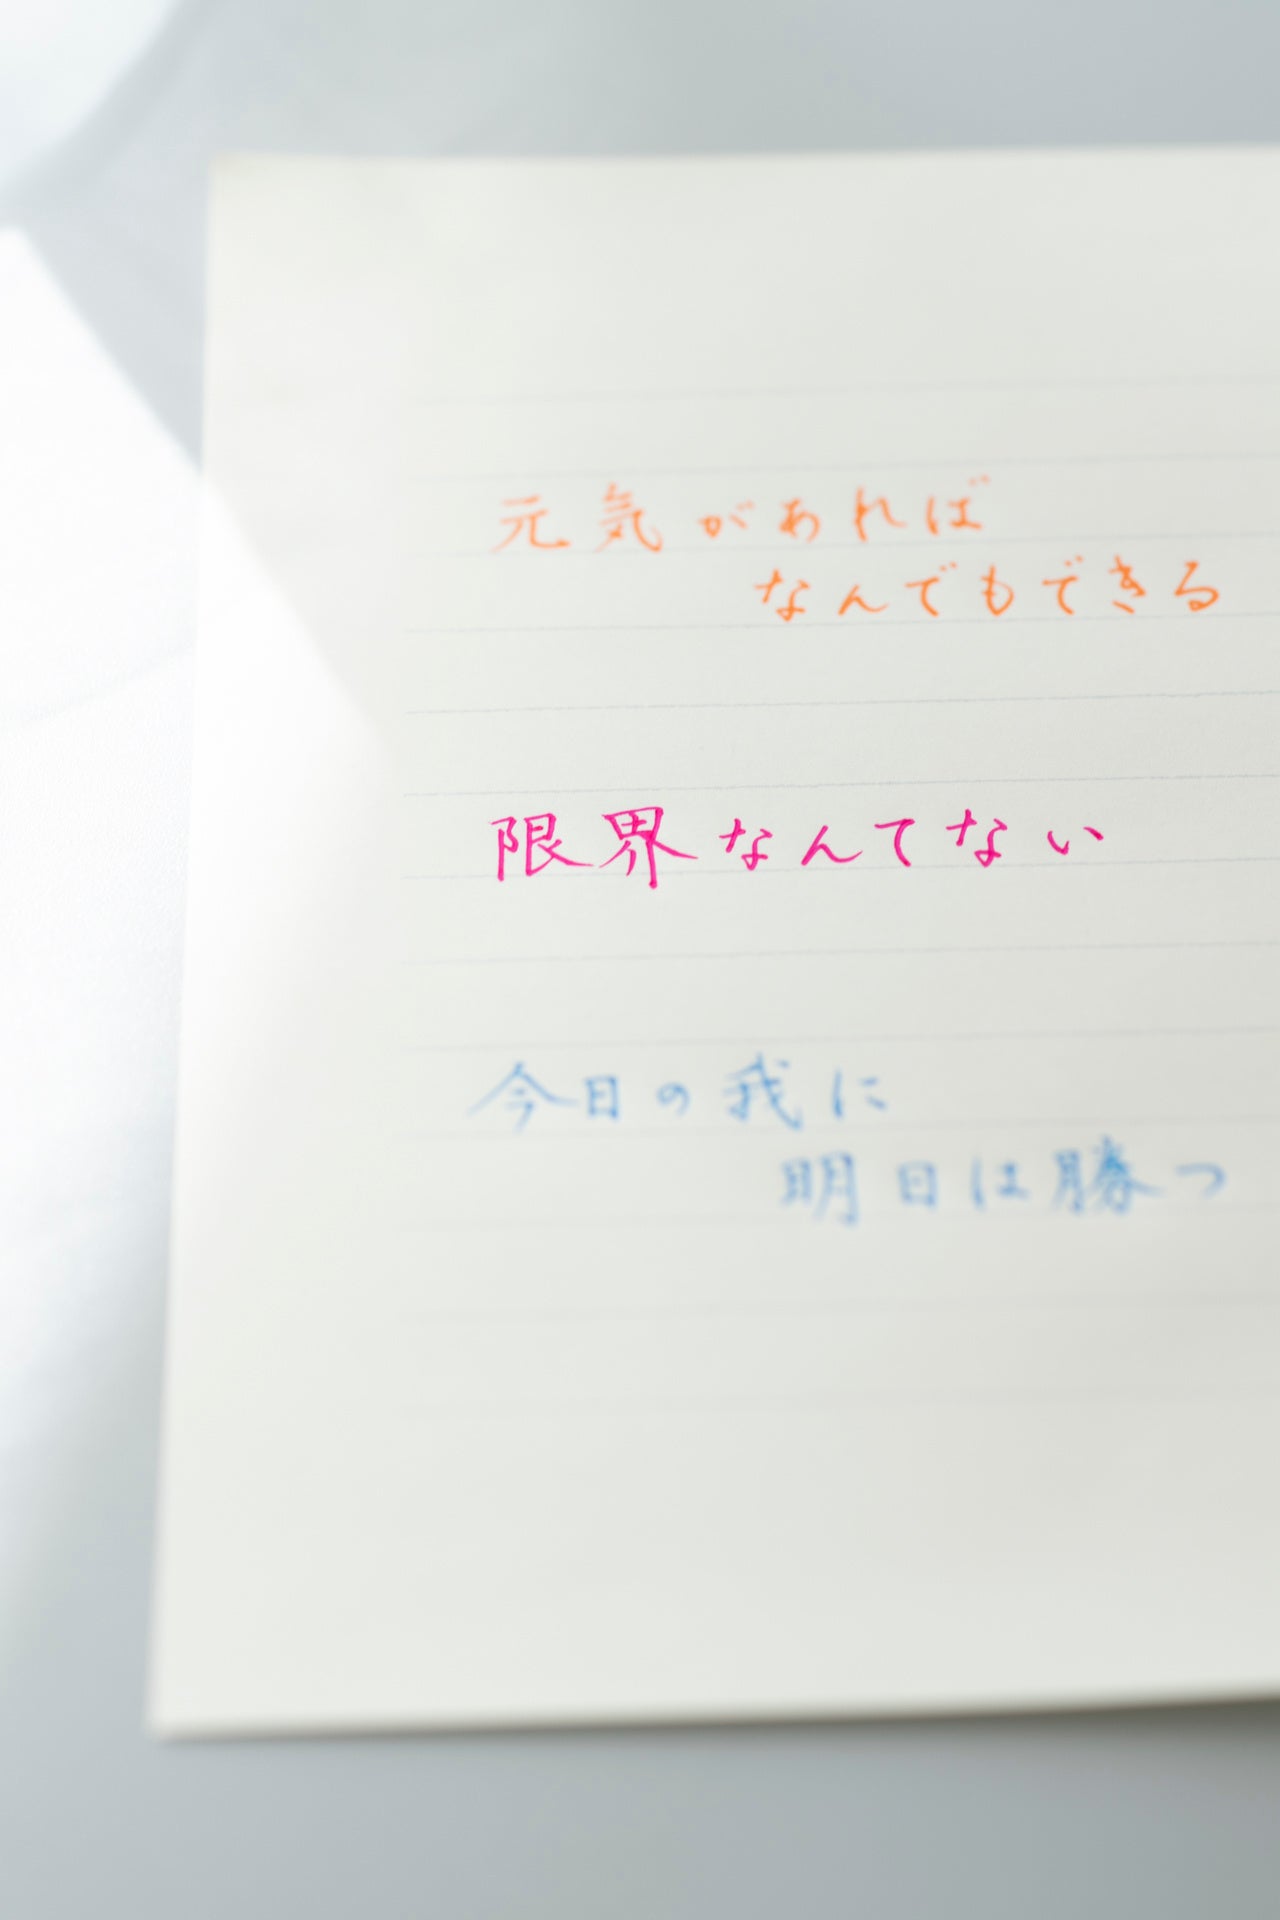 元気があれば
なんでもできる
限界なんてない
今日の我に
明日は勝つ